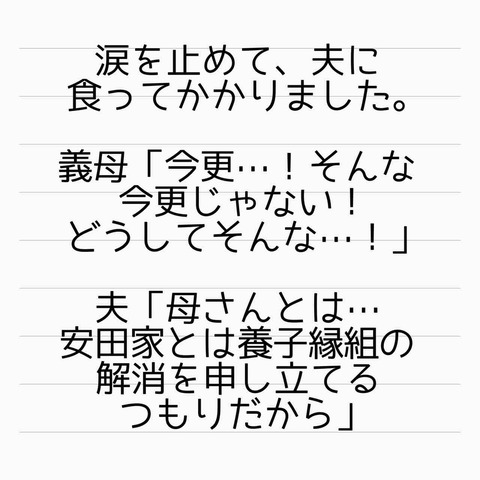 涙を止めて、夫に
食ってかかりました。
義母「今更…！そんな
今更じゃない！
どうしてそんな…！」
夫「母さんとは…
安田家とは養子縁組の
解消を申し立てる
つもりだから」